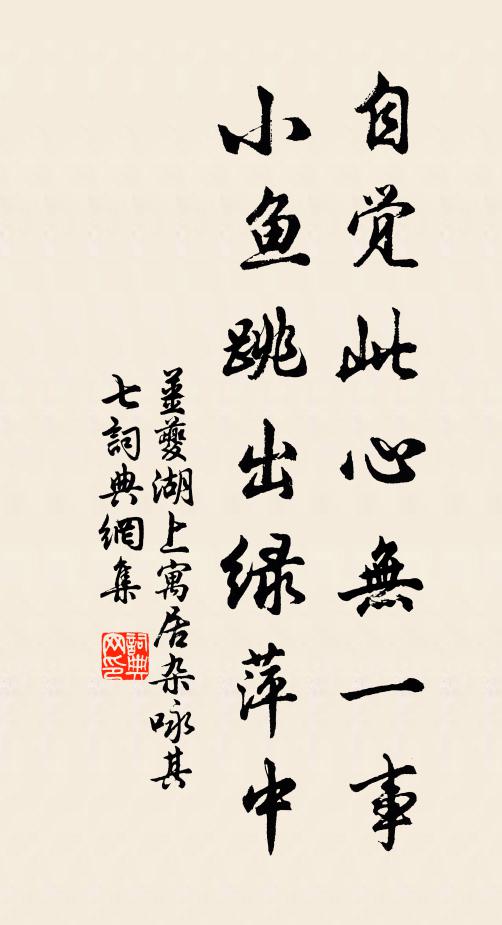 自觉此心無一事
小鱼跳出绿萍中
姜夔湖上寓居杂咏其
七詞典網集
詞典网印